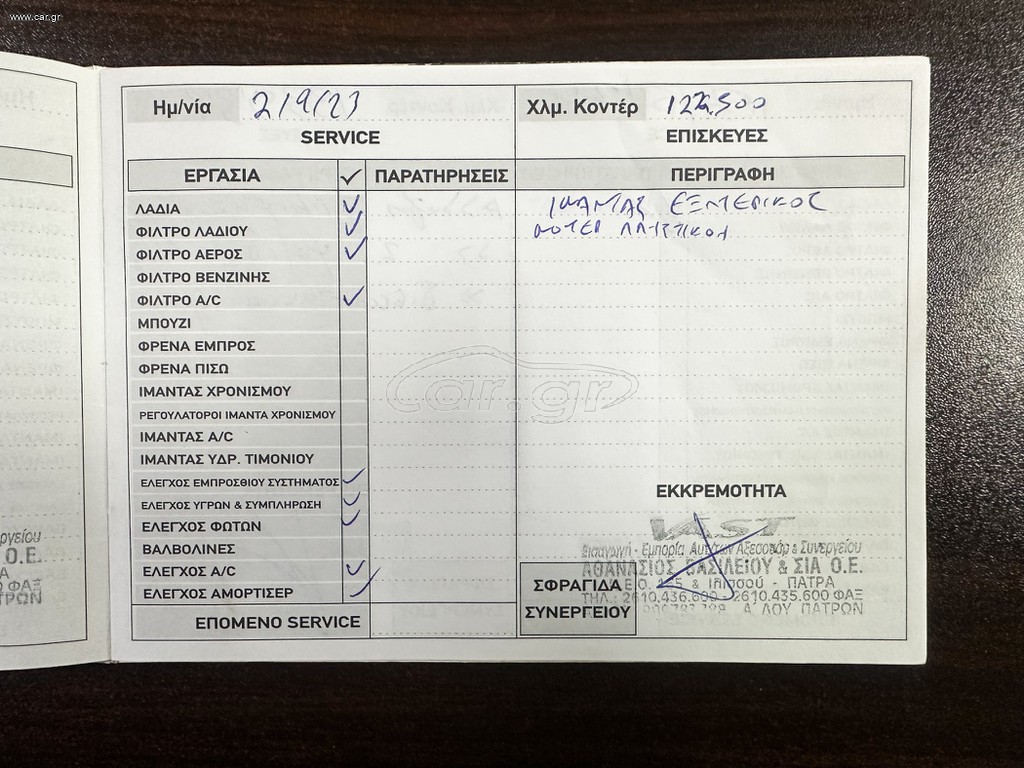 www.car.gr
Ημ/νία 2/9/23
Χλμ. Κοντέρ 122.500
SERVICE
ΕΠΙΣΚΕΥΕΣ
ΕΡΓΑΣΙΑ ✓ ΠΑΡΑΤΗΡΗΣΕΙΣ ΠΕΡΙΓΡΑΦΗ
ΛΑΔΙΑ ✓
ΙΜΑΝΤΑΣ ΕΞΩΤΕΡΙΚΟΣ
ΦΙΛΤΡΟ ΛΑΔΙΟΥ ✓
ΦΙΛΤΡΟ ΑΕΡΟΣ ✓
ΦΙΛΤΡΟ ΒΕΝΖΙΝΗΣ
ΦΙΛΤΡΟ A/C ✓
ΜΠΟΥΖΙ
ΦΡΕΝΑ ΕΜΠΡΟΣ
ΦΡΕΝΑ ΠΙΣΩ
ΙΜΑΝΤΑΣ ΧΡΟΝΙΣΜΟΥ
car.gr
ΡΕΓΟΥΛΑΤΟΡΟΙ ΙΜΑΝΤΑ ΧΡΟΝΙΣΜΟΥ
ΙΜΑΝΤΑΣ A/C
ΙΜΑΝΤΑΣ ΥΔΡ. ΤΙΜΟΝΙΟΥ
ΕΛΕΓΧΟΣ ΕΜΠΡΟΣΘΙΟΥ ΣΥΣΤΗΜΑΤΟΣ ✓
ΕΛΕΓΧΟΣ ΥΓΡΩΝ & ΣΥΜΠΛΗΡΩΣΗ ✓
ΕΛΕΓΧΟΣ ΦΩΤΩΝ ✓
ΒΑΛΒΟΛΙΝΕΣ
ΕΛΕΓΧΟΣ A/C ✓
ΕΛΕΓΧΟΣ ΑΜΟΡΤΙΣΕΡ ✓
ΕΠΟΜΕΝΟ SERVICE
ΕΚΚΡΕΜΟΤΗΤΑ
Εισαγωγή - Εμπορία Αυτ/των Αξεσουάρ & Συνεργείου
ΑΘΑΝΑΣΙΟΣ ΒΑΣΙΛΕΙΟΥ & ΣΙΑ Ο.Ε.
Ιλισσού - ΠΑΤΡΑ
ΤΗΛ.: 2610.436.600 - 2610.435.600 ΦΑΞ
Α' ΔΟΥ ΠΑΤΡΩΝ
ΣΦΡΑΓΙΔΑ
ΣΥΝΕΡΓΕΙΟΥ